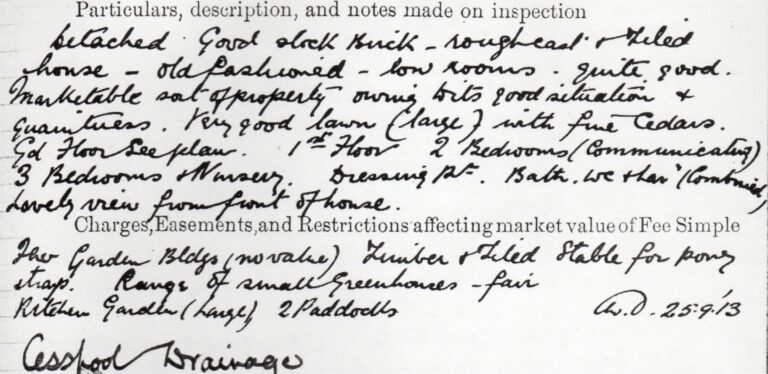 Particulars, description, and notes made on inspection
Detached Good stock Brick – roughcast & Tiled
house – old fashioned – low rooms. quite good.
Marketable sort of property owing to its good situation &
quaintness. Very good lawn (large) with fine Cedars.
Gd Floor See plan. 1st Floor 2 Bedrooms (Communicating)
3 Bedrooms & Nursery. Dressing Rm. Bath. WC & Lav (Combined)
Lovely view from front of house.
Charges, Easements, and Restrictions affecting market value of Fee Simple
Garden Bldgs (no value) Timber & Tiled Stable for pony
& trap. Range of small Greenhouses – fair
Kitchen Garden (Large), 2 Paddocks 25.9.'13
Cesspool Drainage